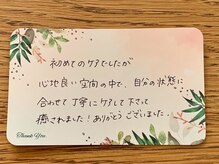 初めてのケアでしたが
心地良い空間の中で、自分の状態に
合わせて丁寧にケアして下さって
癒されました!ありがとうございました.
Thank You.